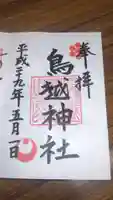 奉拝
鳥越神社
平成二十九年五月一日